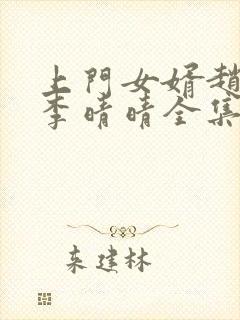 上門女婿趙
李晴晴全集
来建林